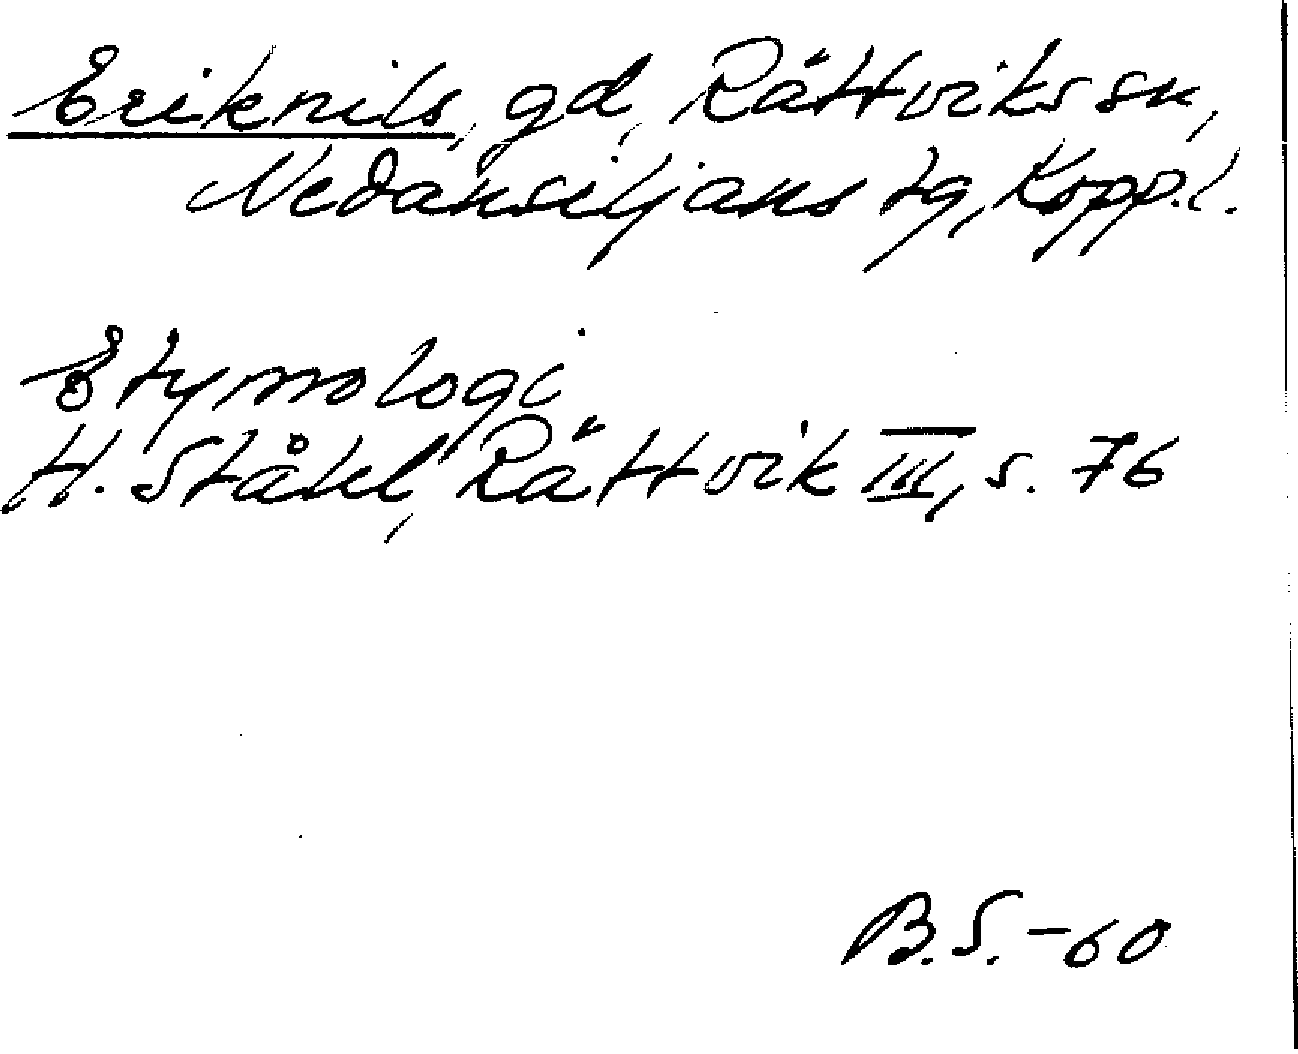 Eriknils, gd, Rättviks sn,
Nedansiljans tg, Kopp. l.
Etymologi
H. Ståhl, Rättvik III, s. 76
B.S. -60